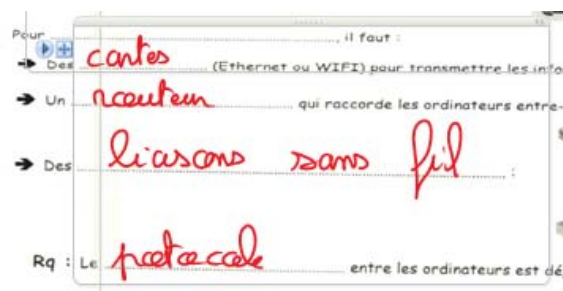 Pour ........................, il faut :
➔ Des cartes (Ethernet ou WIFI) pour transmettre les info
➔ Un routeur qui raccorde les ordinateurs entre-
➔ Des liasons sans fil :
Rq : Le protocole entre les ordinateurs est dé